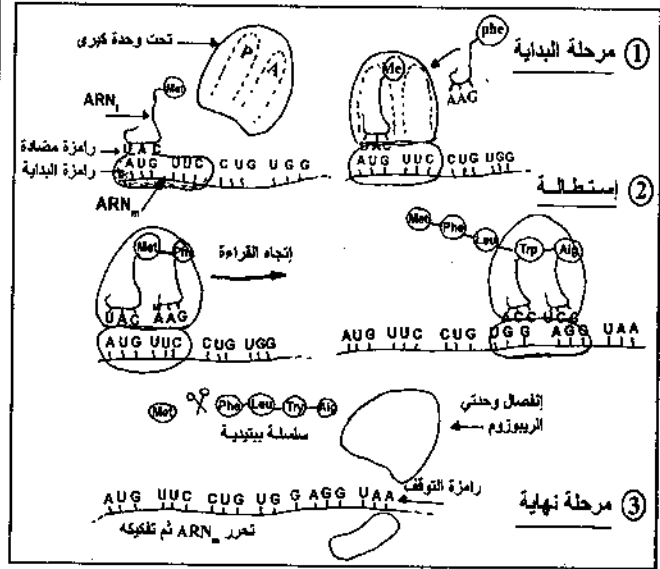 ① مرحلة البداية
تحت وحدة كبرى
P A
Met
ARNt
رامزة مضادة
رامزة البداية
UAC
AUG UUC CUG UGG
ARNm
phe
AAG
Me
UAC
AUG UUC CUG UGG
② إستطالة
Met Phe
إتجاه القراءة
UAC AAG
AUG UUC CUG UGG
Met Phe Leu Trp Aig
ACC UCG
AUG UUC CUG UGG AGG UAA
Met Phe Leu Try Aig
سلسلة ببتيدية
إنفصال وحدتي
الريبوزوم
رامزة التوقف
AUG UUC CUG UG G AGG UAA
تحرر ARNm ثم تفكيكه
③ مرحلة نهاية